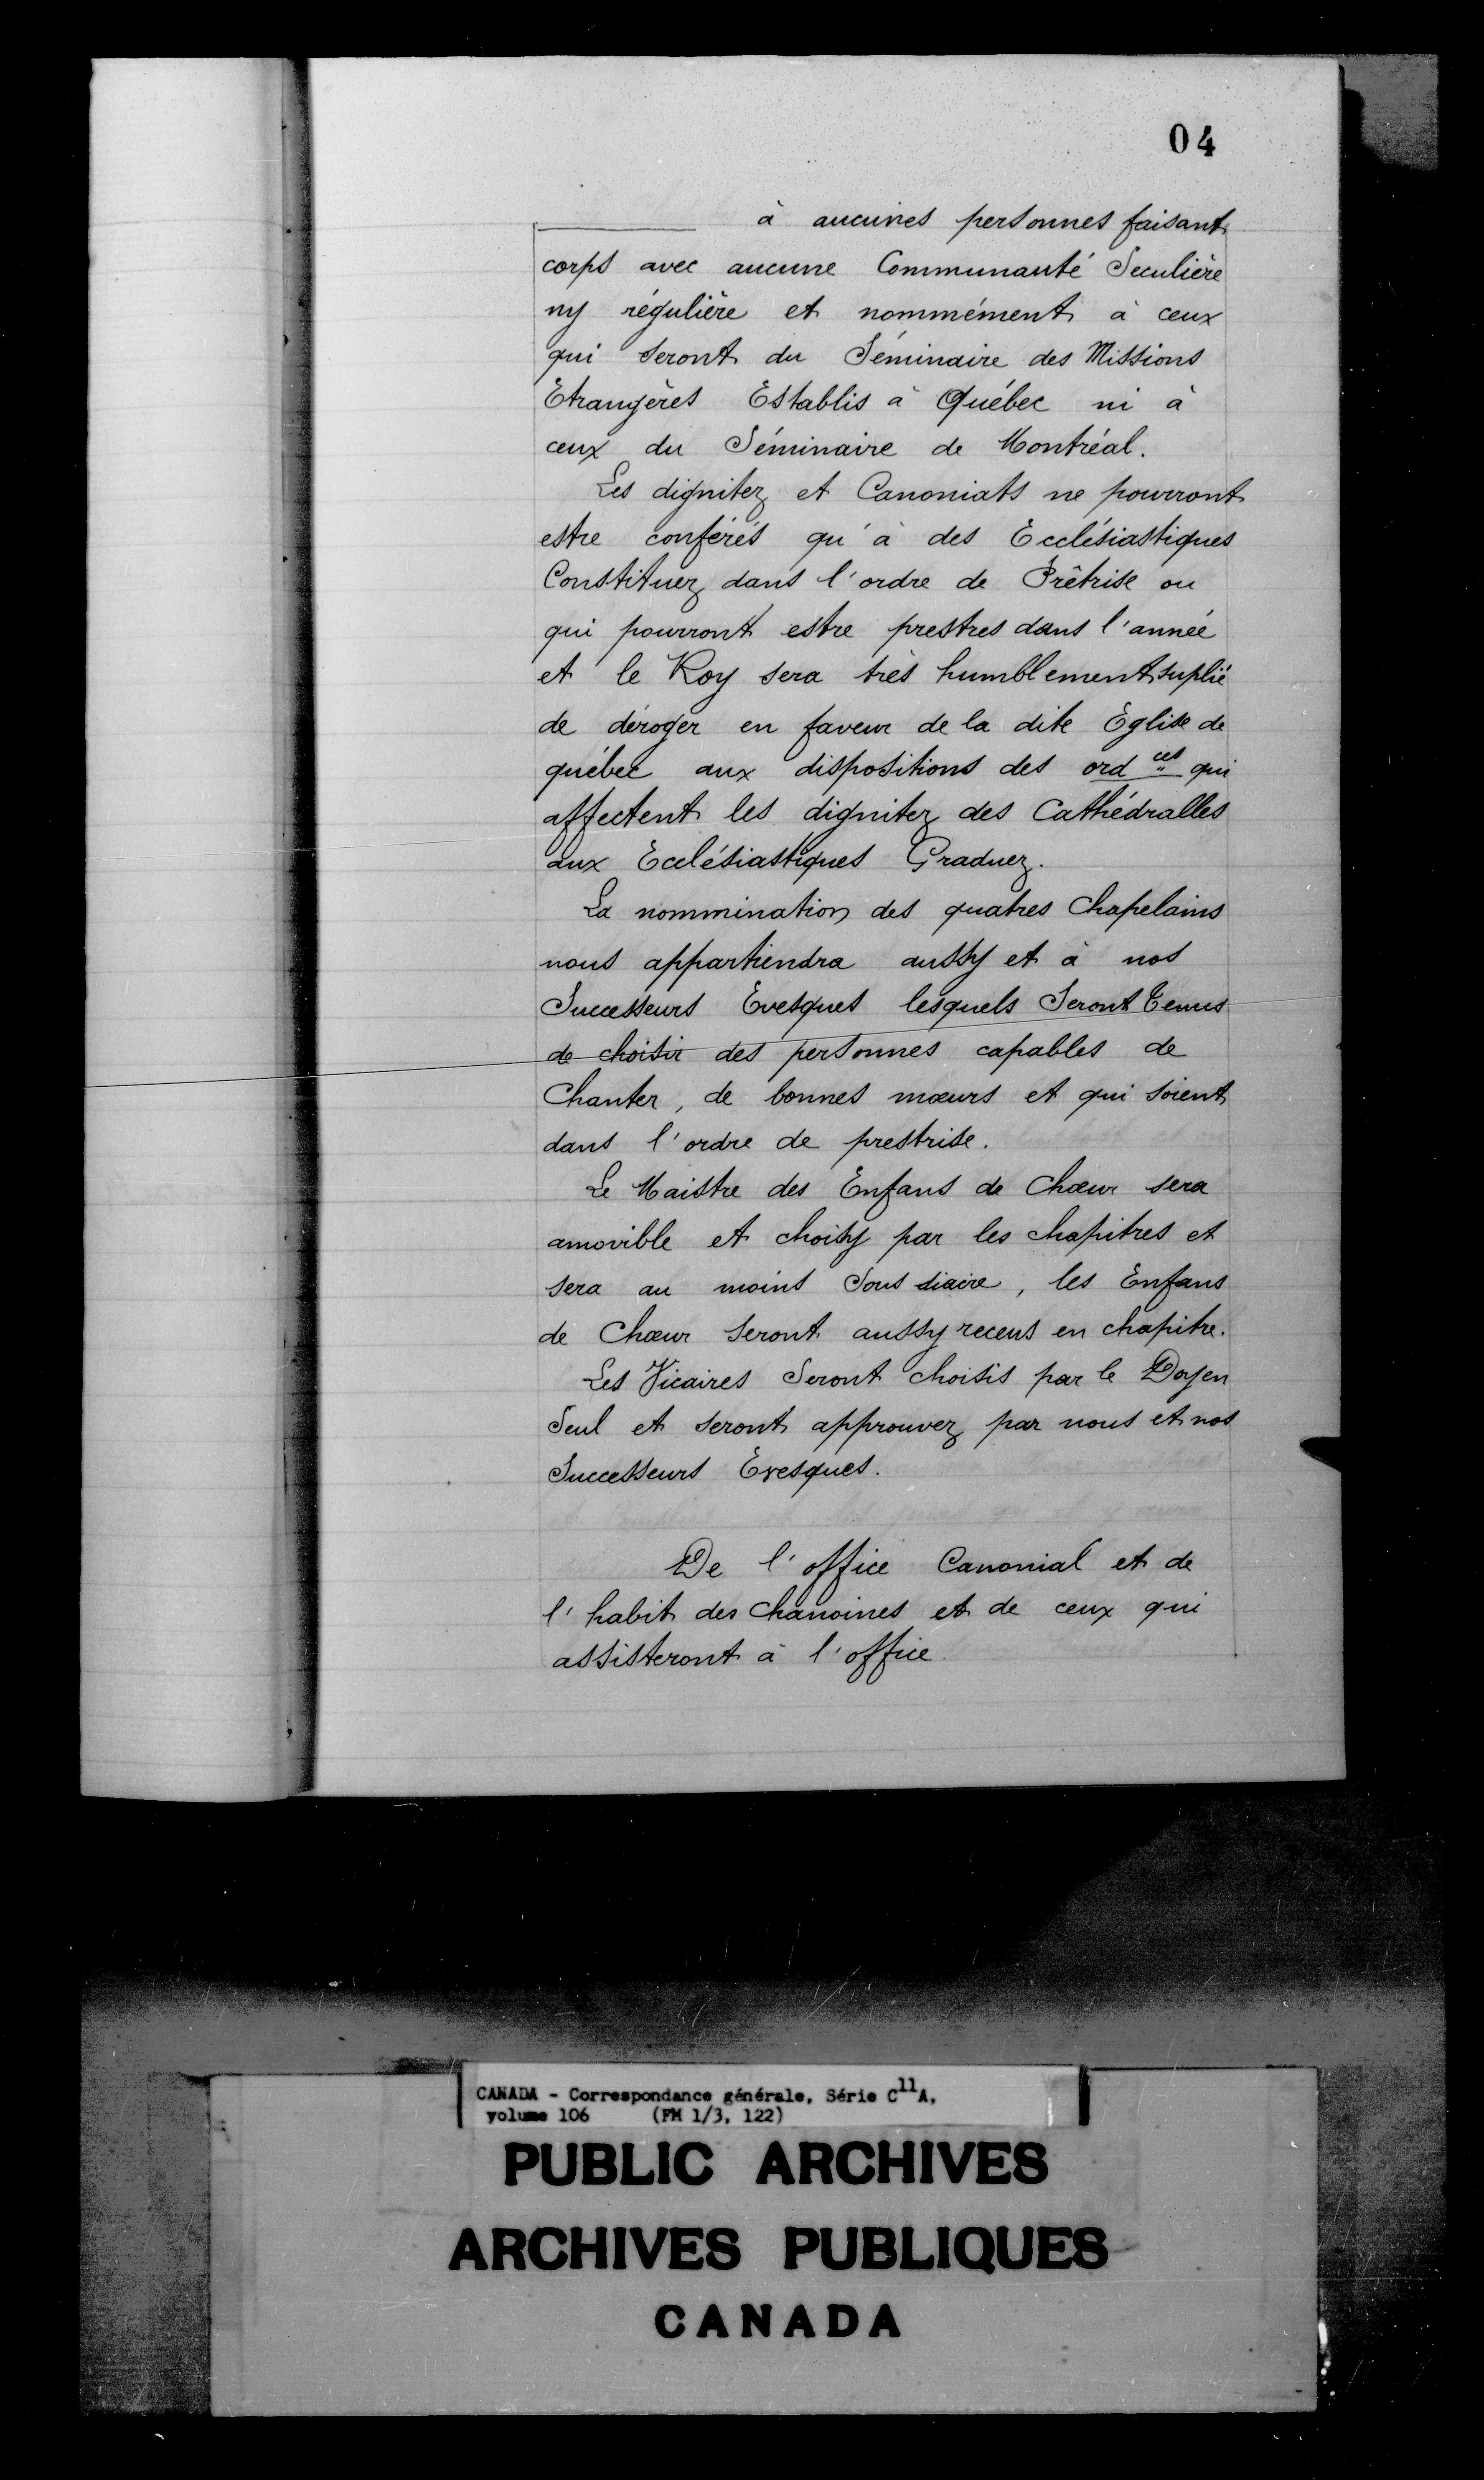 04
à aucunes personnes faisant
corps avec aucune Communauté Seculière
ny régulière et nommément à ceux
qui seront du Séminaire des Missions
Etrangères Establis à Québec ni à
ceux du Séminaire de Montréal.
Les dignitez et Canoniats ne pourront
estre conférés qu'à des Ecclésiastiques
Constituez dans l'ordre de Prêtrise ou
qui pourront estre prestres dans l'année
et le Roy sera très humblement suplié
de déroger en faveur de la dite Eglise de
québec aux dispositions des ord ces qui
affectent les dignitez des Cathédralles
aux Ecclésiastiques Graduez.
La nommination des quatres Chapelains
nous appartiendra aussy et à nos
Successeurs Evesques lesquels Seront Tenus
de choisir des personnes capables de
Chanter, de bonnes mœurs et qui soient
dans l'ordre de prestrise.
Le Maistre des Enfans de Chœur sera
amovible et choisy par les chapitres et
sera au moins Sous diacre, les Enfans
de Chœur seront aussy receus en chapitre.
Les Vicaires Seront choisis par le Doyen
Seul et seront approuvez par nous et nos
Successeurs Evesques.
De l'office Canonial et de
l'habit des Chanoines et de ceux qui
assisteront à l'office
CANADA - Correspondance générale, Série C11A,
volume 106 (FM 1/3, 122)
PUBLIC ARCHIVES
ARCHIVES PUBLIQUES
CANADA